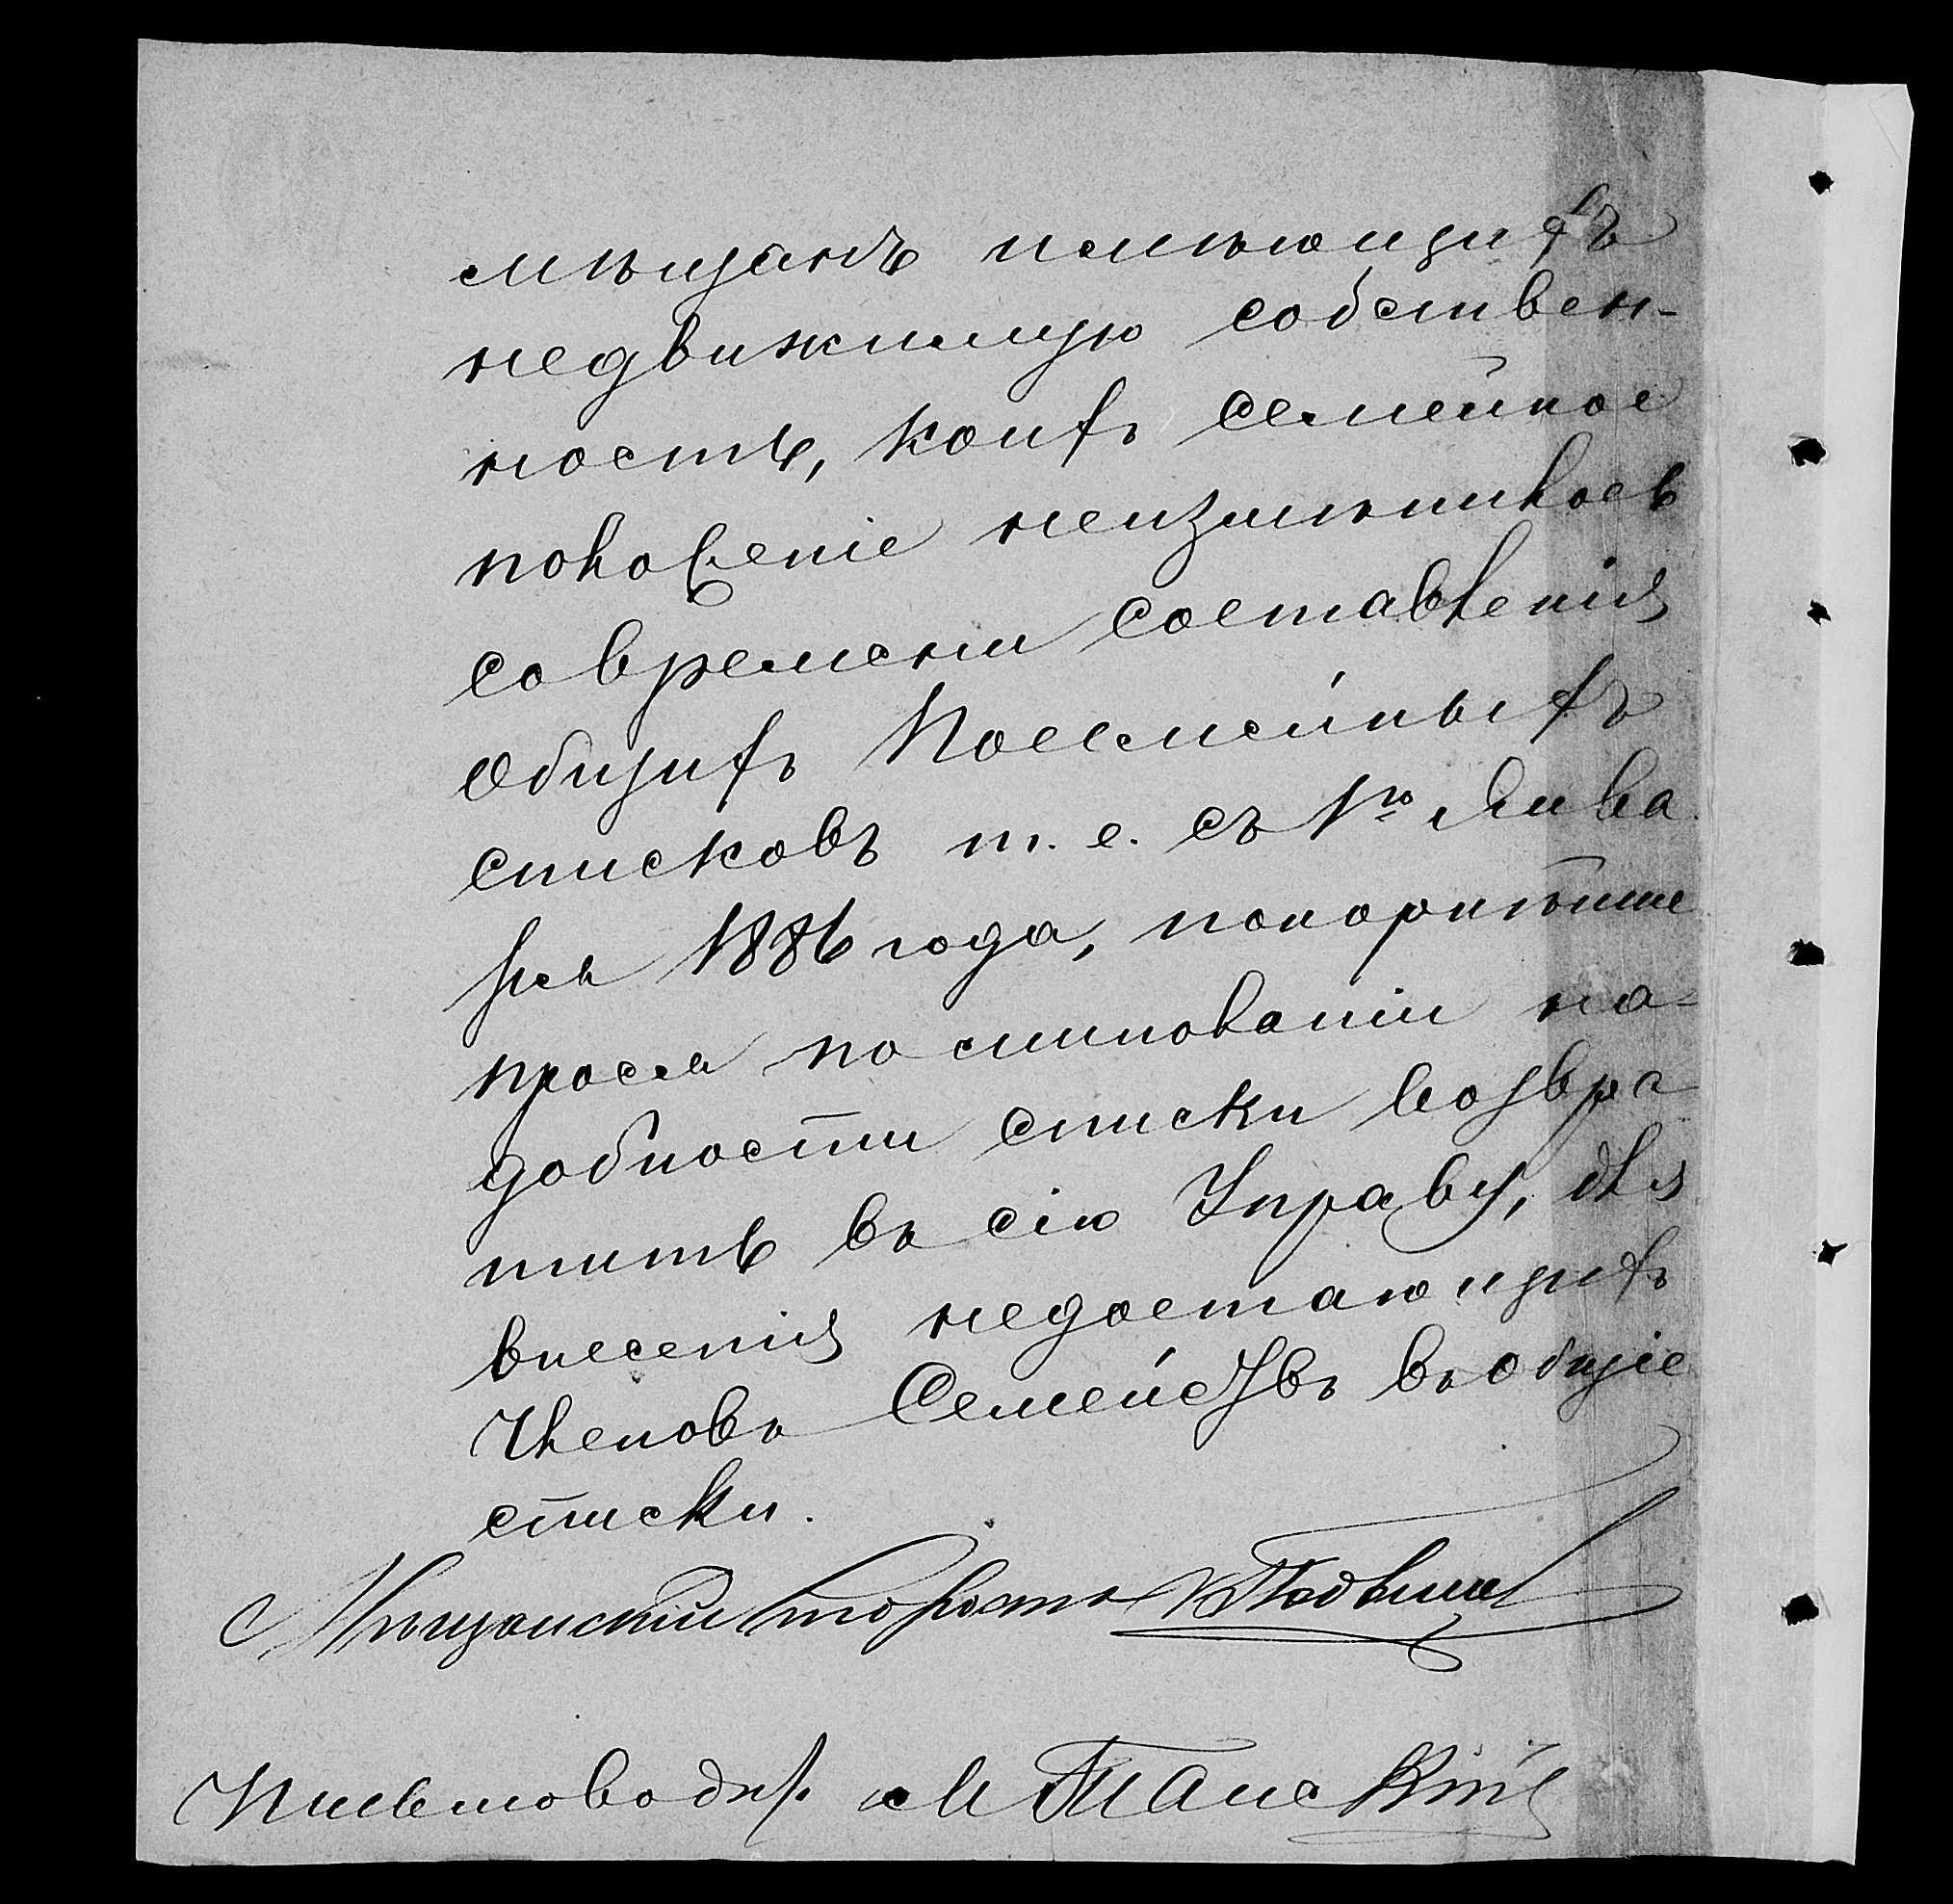 мѣщанъ имѣющихъ
недвижимую собствен-
ность, коихъ семейное
положеніе неизмѣнилось
со времени составленія
общихъ Посемейныхъ
списковъ т. е. съ 1го Янва
ря 1886 года, покорнѣйше
прося по минованіи на-
добности списки возвра-
тить въ сію Управу, для
внесенія недостающихъ
членовъ Семействъ въ общіе
списки.
Мѣщанскій староста
Письмоводи. М